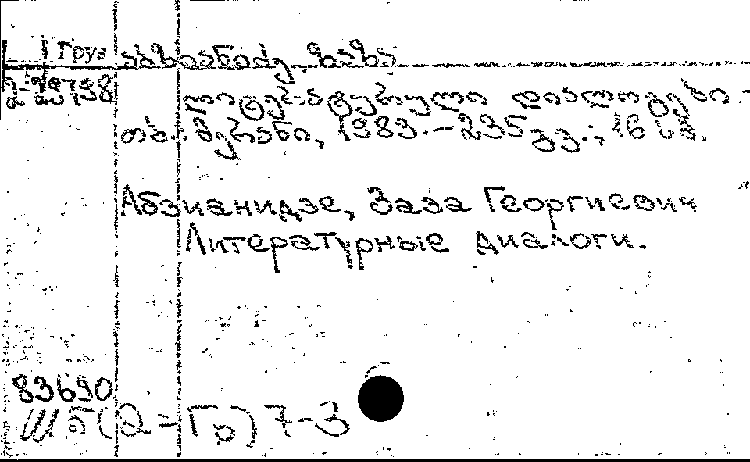 Груз აბზიანიძე, ზაზა
ლიტერატურული დიალოგები. -
თბ.: მერანი, 1983. - 235 გვ.; 16 სმ.
Абзианидзе, Заза Георгиевич
Литературные диалоги.
83690
Ш5(2=Гр) 7-3